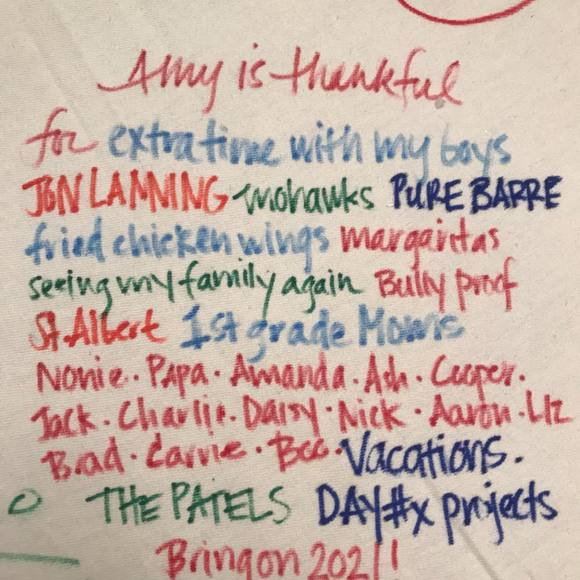 Amy is thankful
for extra time with my boys
JON LANNING mohawks PURE BARRE
fried chicken wings margaritas
seeing my family again Bully proof
St. Albert 1st grade Moms
Nonie · Papa · Amanda · Ash · Cooper ·
Jack · Charlie · Daisy · Nick · Aaron · Liz
Brad · Carrie · Bec · Vacations.
THE PATELS DAY#x projects
Bring on 2021!